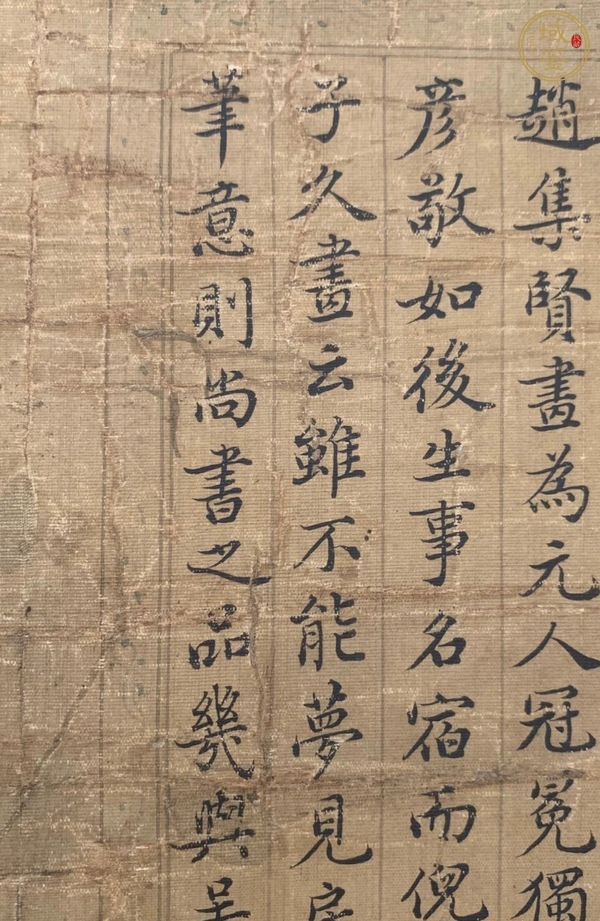 趙集賢畫為元人冠冕獨
彦敬如後生事名宿而倪
子久畫云雖不能夢見房
筆意則尚書之品幾與吴